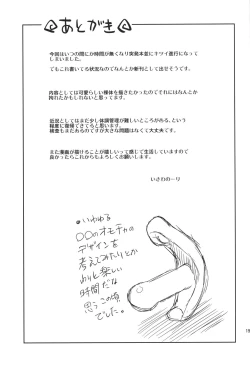 あとがき
今回はいつの間にか時間が無くなり実質本当にキツイ進行になって
しまいました。
でもこれ書いてる状況なのでなんとか新刊として出せそうです。
内容としては可愛らしい裸体を描きたかったのでそれにはなんとか
拘れたかもしれないと思ってます。
近況としてはまだ少し体調管理が難しいところがある、という
程度に復帰できてると思います。
検査もまだあるのですが大きな問題はなくて大丈夫です。
また漫画が描けることが嬉しいって感じで生活していますので
良かったらこれからもよろしくお願いします。
いさわのーり
いわゆる
○○のオモチャの
デザインを
考えてみたりとか
わりと楽しい
時間だな
思うこの頃
でした。
19